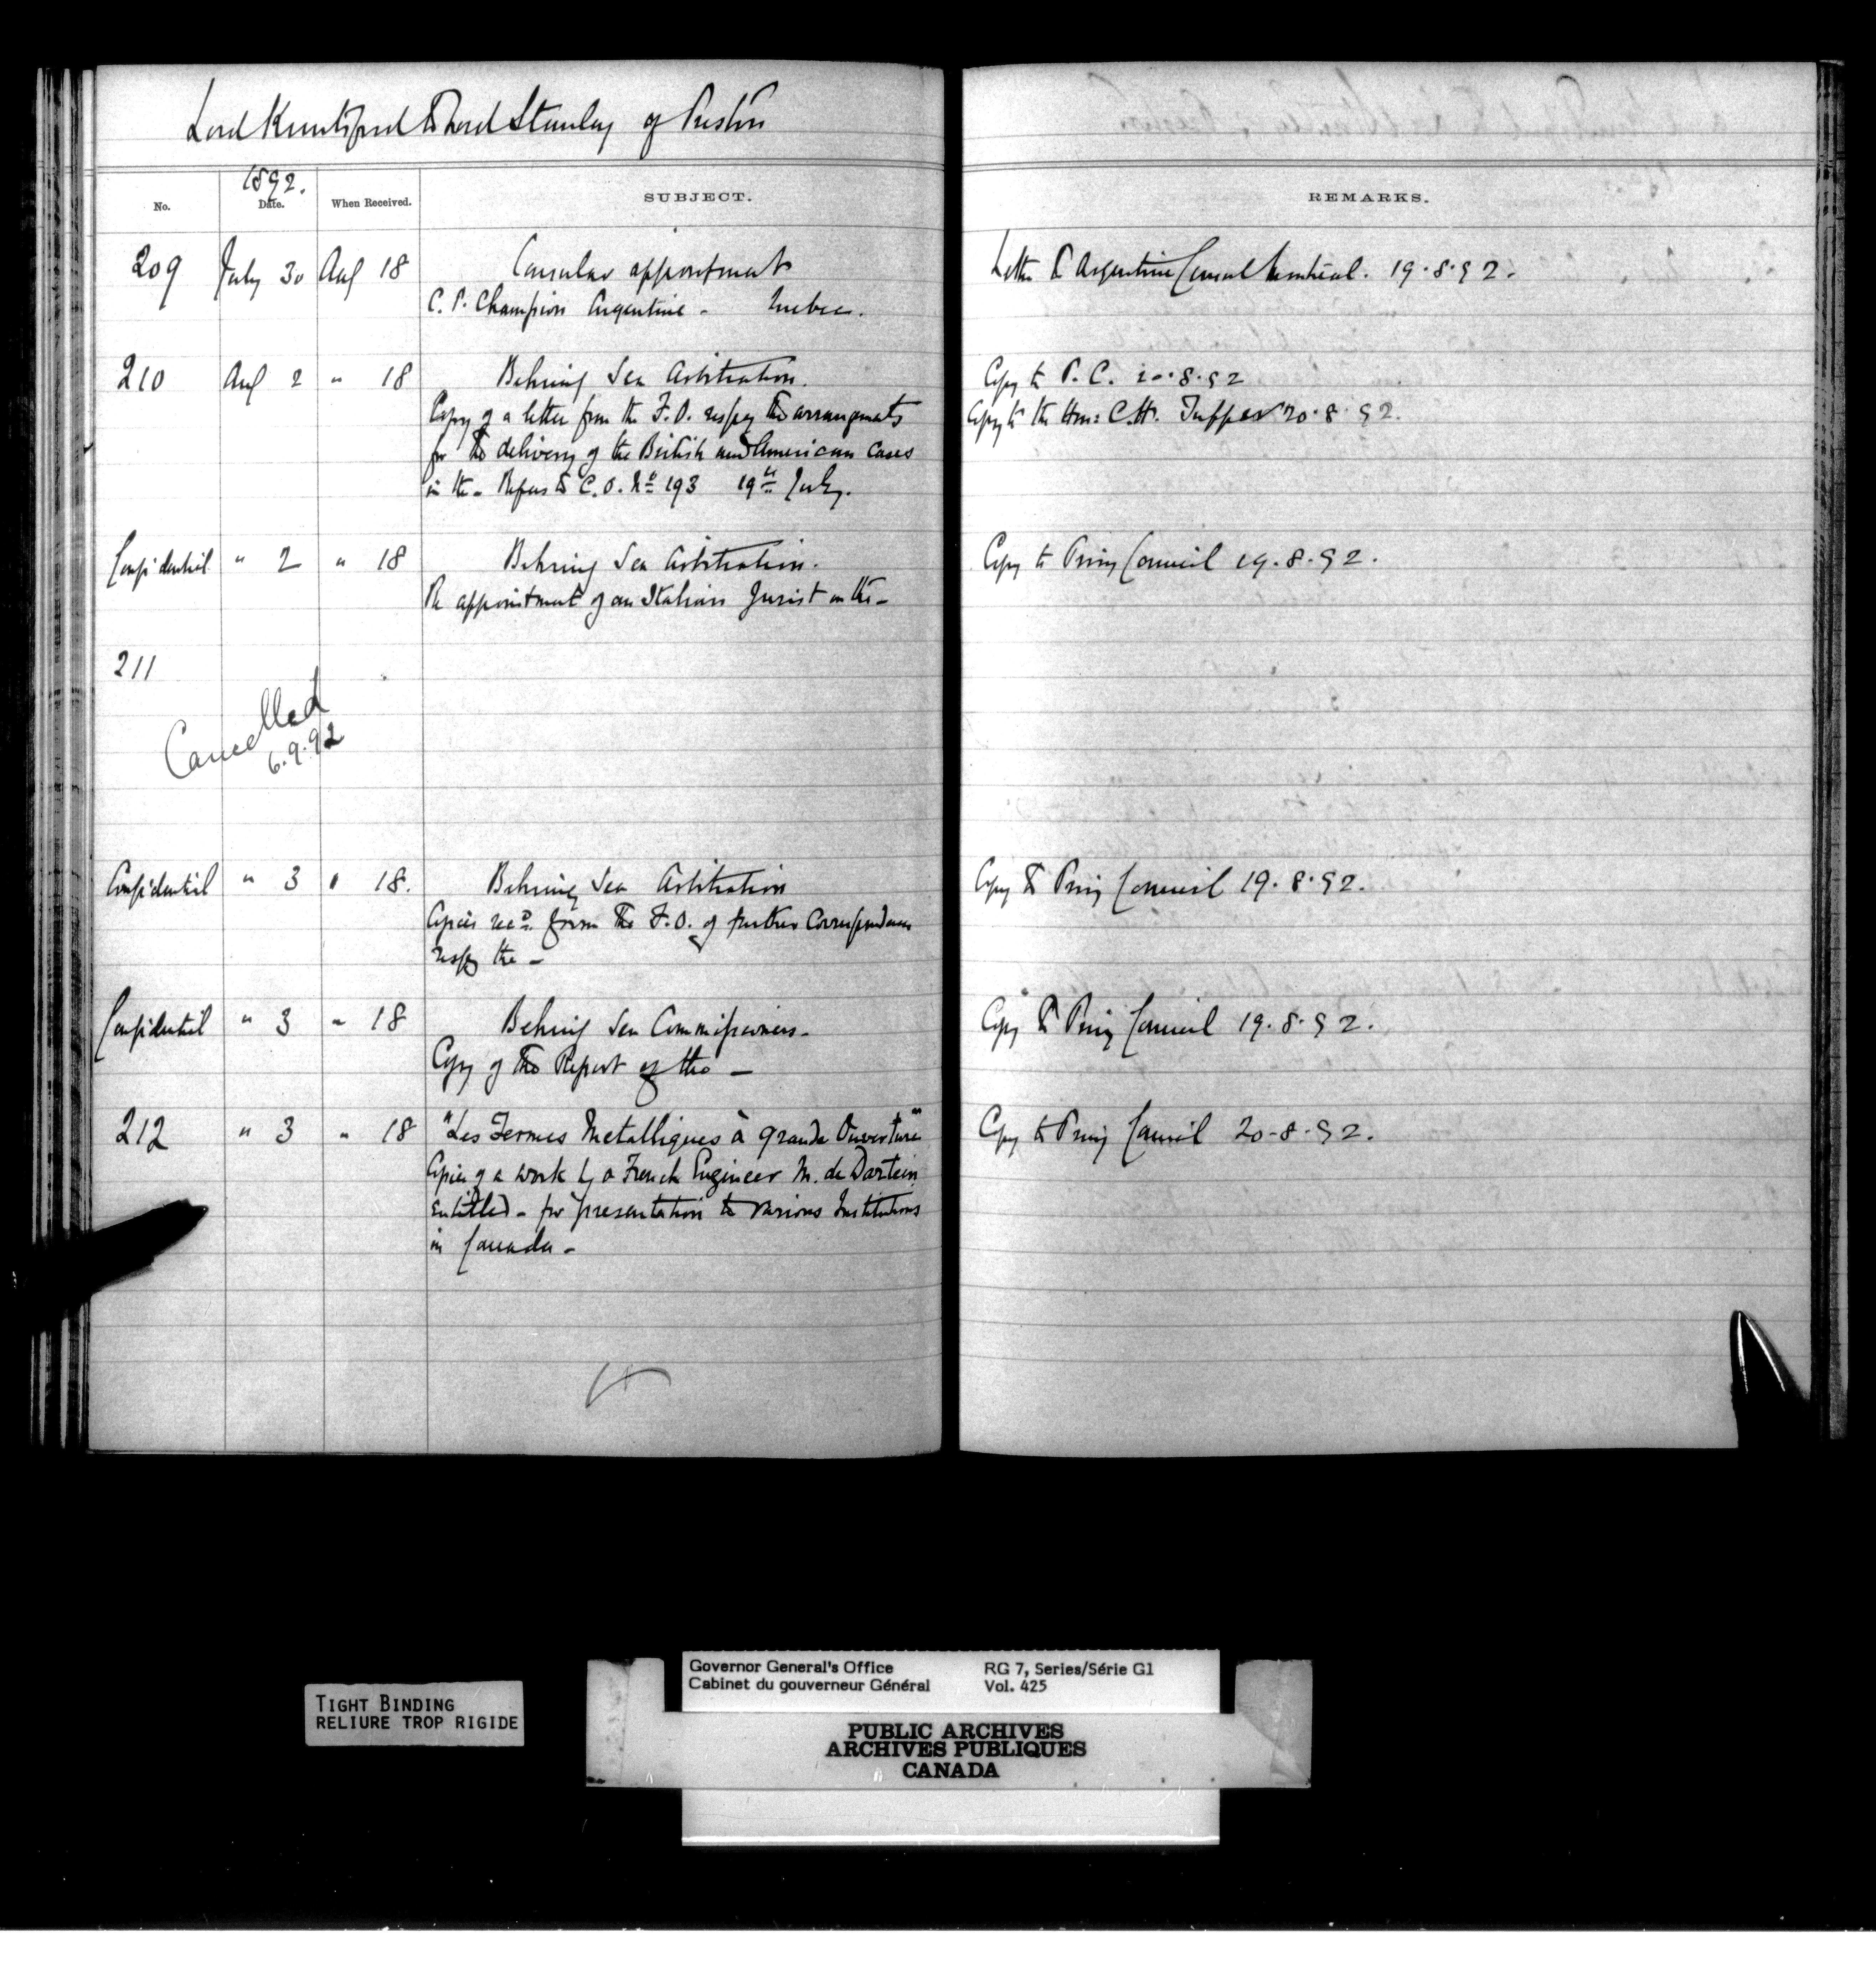 Lord Knutsford to Lord Stanley of Preston
1892.
No. Date. When Received. SUBJECT. REMARKS.
209 July 30 Aug 18 Consular appointment Letter to Argentine Consul Montreal. 19.8.92.
C. P. Champion Argentine - Quebec.
210 Aug 2 " 18 Behring Sea Arbitration. Copy to P.C. 20.8.92
Copy of a letter from the F.O. respg the arrangements Copy to the Hon: C.H. Tupper 20.8.92.
for the delivery of the British and American Cases
in the - Refers to C.O. No 193 19th July.
Confidential " 2 " 18 Behring Sea Arbitration. Copy to Privy Council 19.8.92.
Re appointment of an Italian Jurist on the -
211
Cancelled
6.9.92
Confidential " 3 " 18. Behring Sea Arbitration Copy to Privy Council 19.8.92.
Copies recd. from the F.O. of further Correspondence
respg the -
Confidential " 3 " 18 Behring Sea Commissioners - Copy to Privy Council 19.8.92.
Copy of the Report of the -
212 " 3 " 18 "Les Fermes Metalliques à grande Ouverture" Copy to Privy Council 20-8-92.
Copies of a work by a French Engineer M. de Dartein
entitled - for presentation to various Institutions
in Canada -
Governor General's Office RG 7, Series/Série G1
Cabinet du gouverneur Général Vol. 425
TIGHT BINDING
RELIURE TROP RIGIDE
PUBLIC ARCHIVES
ARCHIVES PUBLIQUES
CANADA